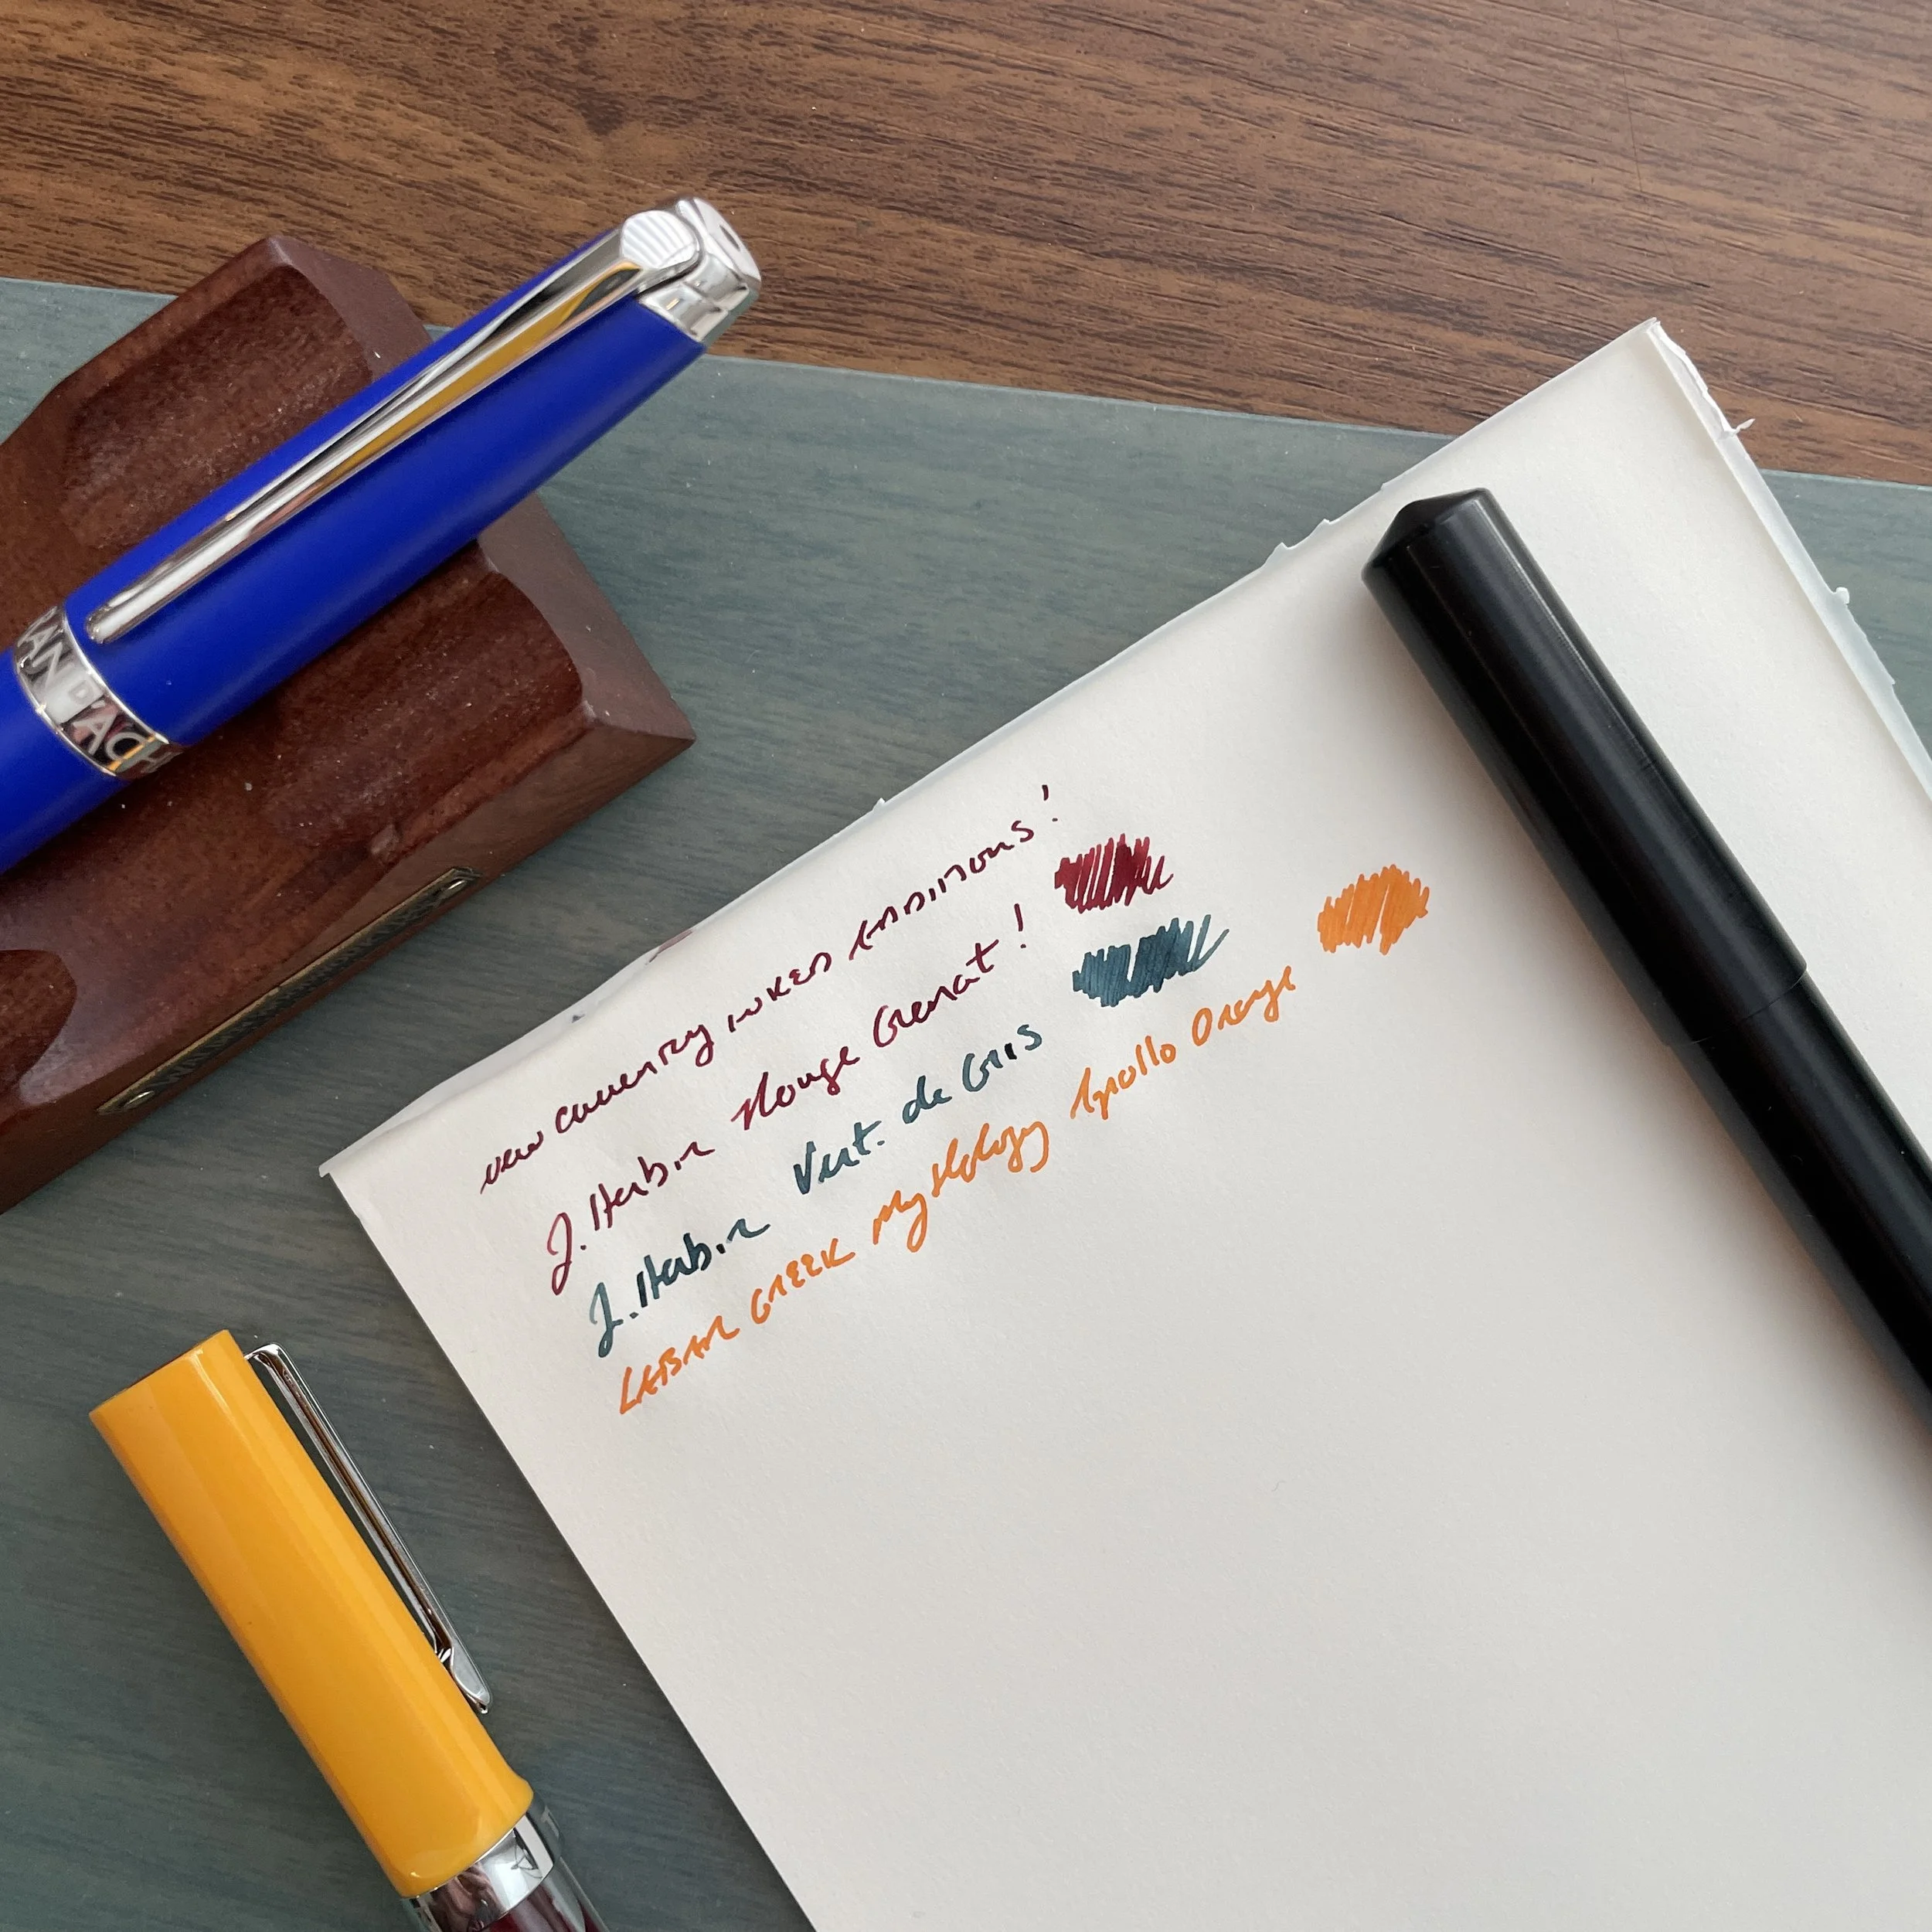 new currently inked additions!
J. Herbin Rouge Grenat!
J. Herbin Vert. de Gris
LABAN GREEK Mythology Apollo Orange
RAN D'ACH